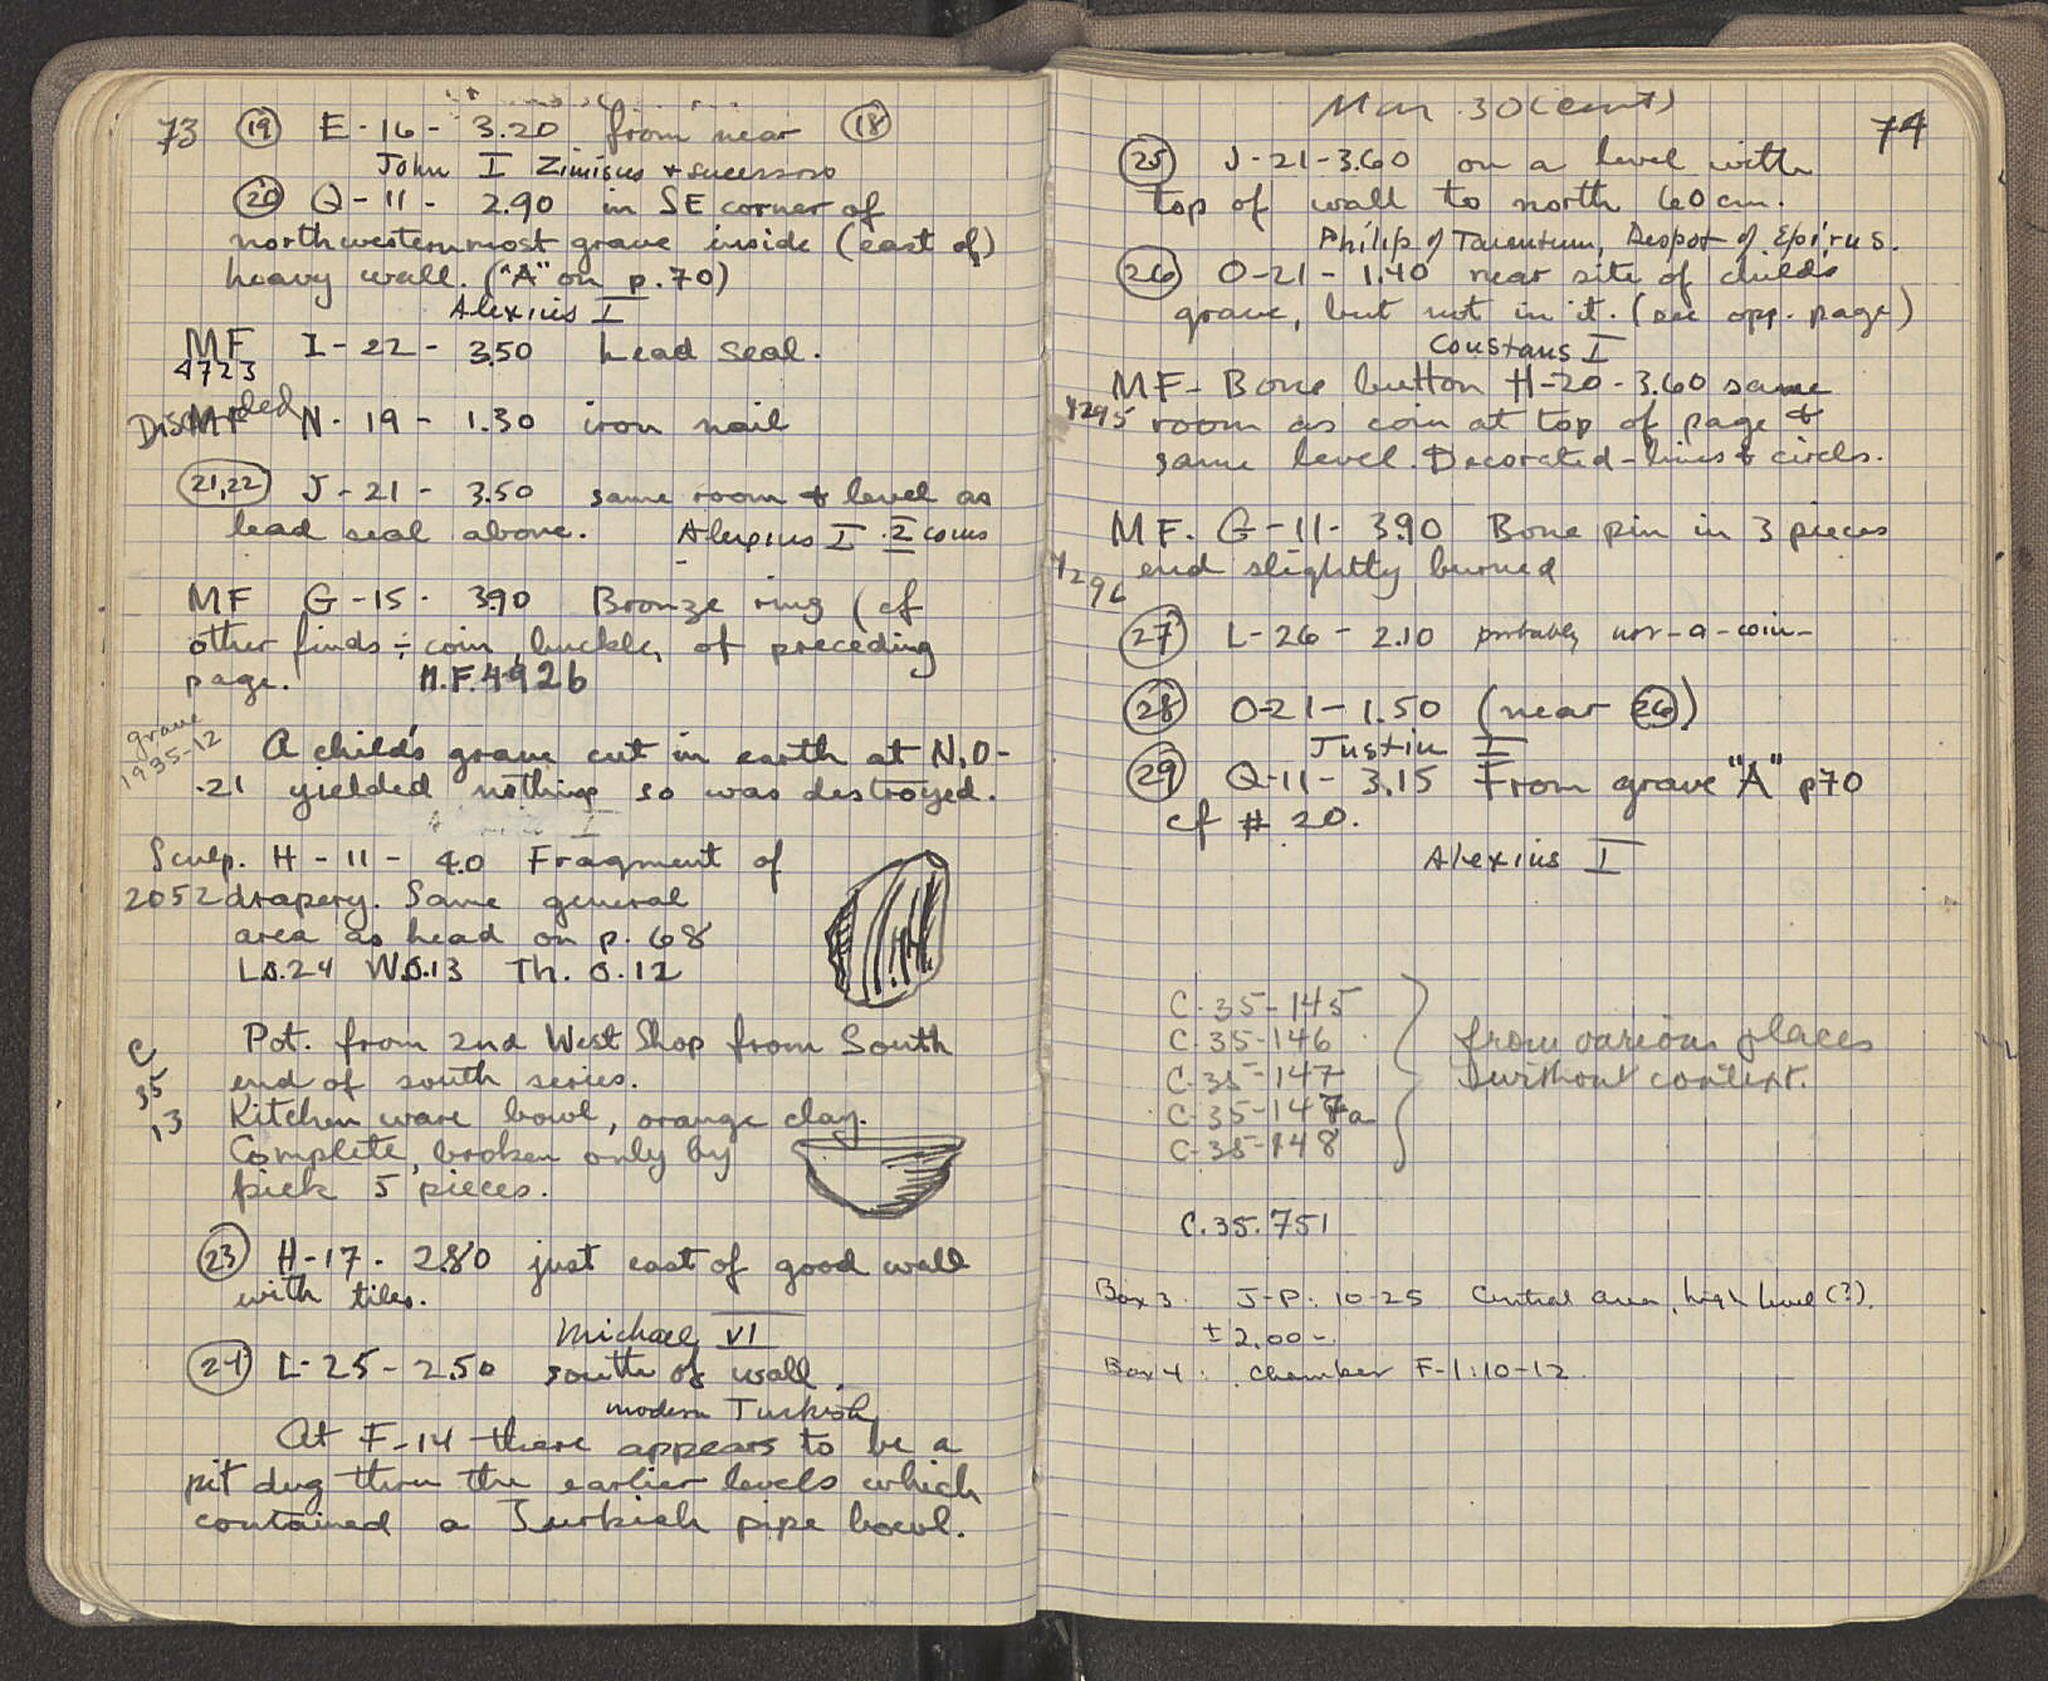 73 (19) E-16- 3.20 from near (18)
John I Zimisus + sucessors
(20) Q-11- 2.90 in SE corner of
northwesternmost grave inside (east of)
heavy wall. ("A" on p.70)
Alexius I
MF I-22- 3.50 Lead seal.
4723
Discarded
MF N-19-1.30 iron nail
(21,22) J-21- 3.50 same room & level as
lead seal above. Alexius I 2 coins
MF G-15- 3.90 Bronze ring (cf
other finds ÷ coin, buckle, of preceding
page. M.F. 4926
grave
1935-12
A child's grave cut in earth at N,O-
-21 yielded nothing so was destroyed.
Sculp. H-11- 4.0 Fragment of
2052 drapery. Same general
area as head on p. 68
L.0.24 W.0.13 Th. 0.12
Pot. from 2nd West Shop from South
C
end of south series.
35
Kitchen ware bowl, orange clay.
13
Complete, broken only by
pick 5 pieces.
(23) H-17- 2.80 just east of good wall
with tiles.
Michael VI
(24) L-25-2.50 south of wall.
modern Turkish
At F-14 there appears to be a
pit dug thru the earlier levels which
contained a Turkish pipe bowl.
Mar. 30 (cont)
74
(25) J-21-3.60 on a level with
top of wall to north 60 cm.
Philip of Tarentum, Despot of Epirus.
(26) O-21-1.40 near site of child's
grave, but not in it. (see opp. page)
Constans I
MF- Bone button H-20-3.60 same
4295 room as coin at top of page &
same level. Decorated-lines & circles.
MF. G-11- 3.90 Bone pin in 3 pieces
4296 end slightly burned
(27) L-26-2.10 probably not-a-coin-
(28) O-21-1.50 (near (26))
Justin I
(29) Q-11-3.15 From grave "A" p70
cf # 20.
Alexius I
C.35-145
C.35-146
C.35-147
C.35-147a
C.35-148
from various places
without context.
C.35.751
Box 3. J-P: 10-25 Central area, high level (?).
± 2.00-
Box 4: Chamber F-1:10-12.